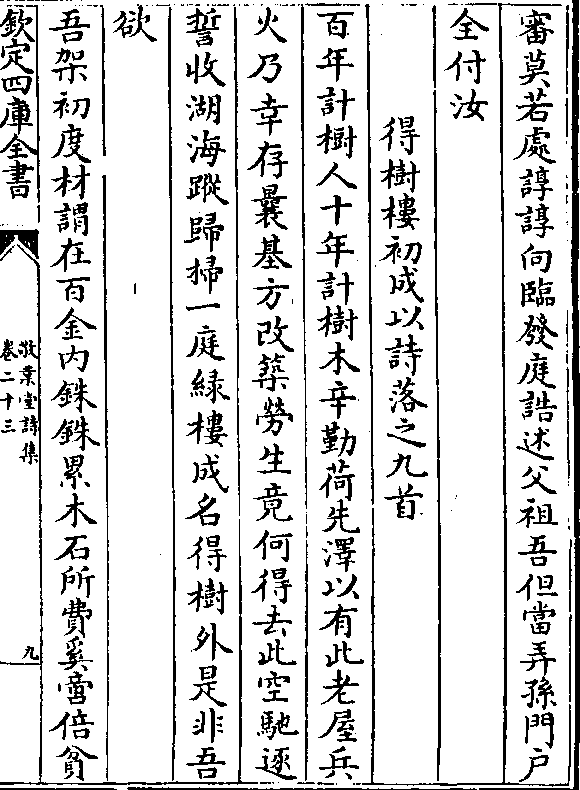 審莫若處諄諄向臨發庭誥述父祖吾但當弄孫門戶
全付汝
得樹樓初成以詩落之九首
百年計樹人十年計樹木辛勤荷先澤以有此老屋兵
火乃幸存曩基方改築勞生竟何得去此空馳逐
誓收湖海蹤歸掃一庭綠樓成名得樹外是非吾
欲
吾架初度材謂在百金內銖銖累木石所費奚啻倍貧
欽定四庫全書
敬業堂詩集
卷二十三
九